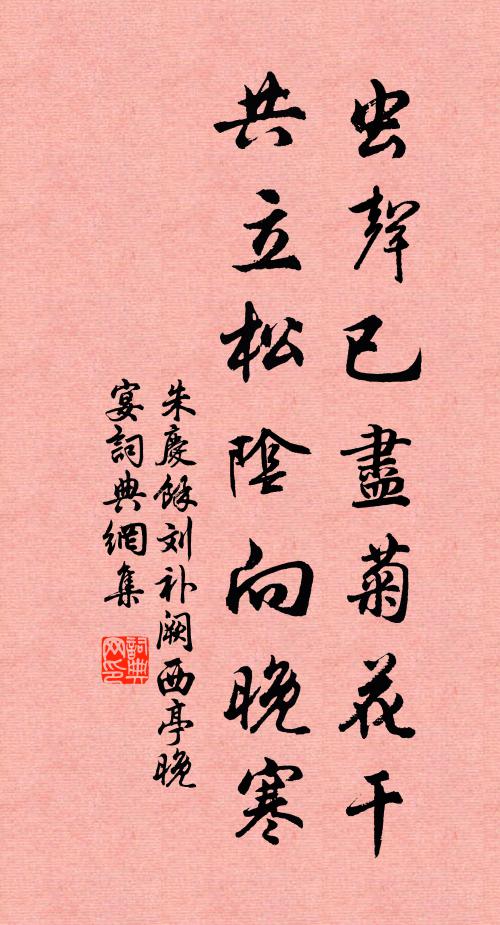 虫聲已盡菊花干
共立松陰向晚寒
朱慶餘刘补阙西亭晚
宴詞典網集
詞典
网印